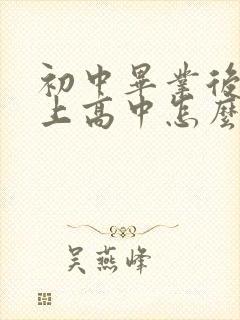 初中畢業後
上高中怎麼
吴燕峰